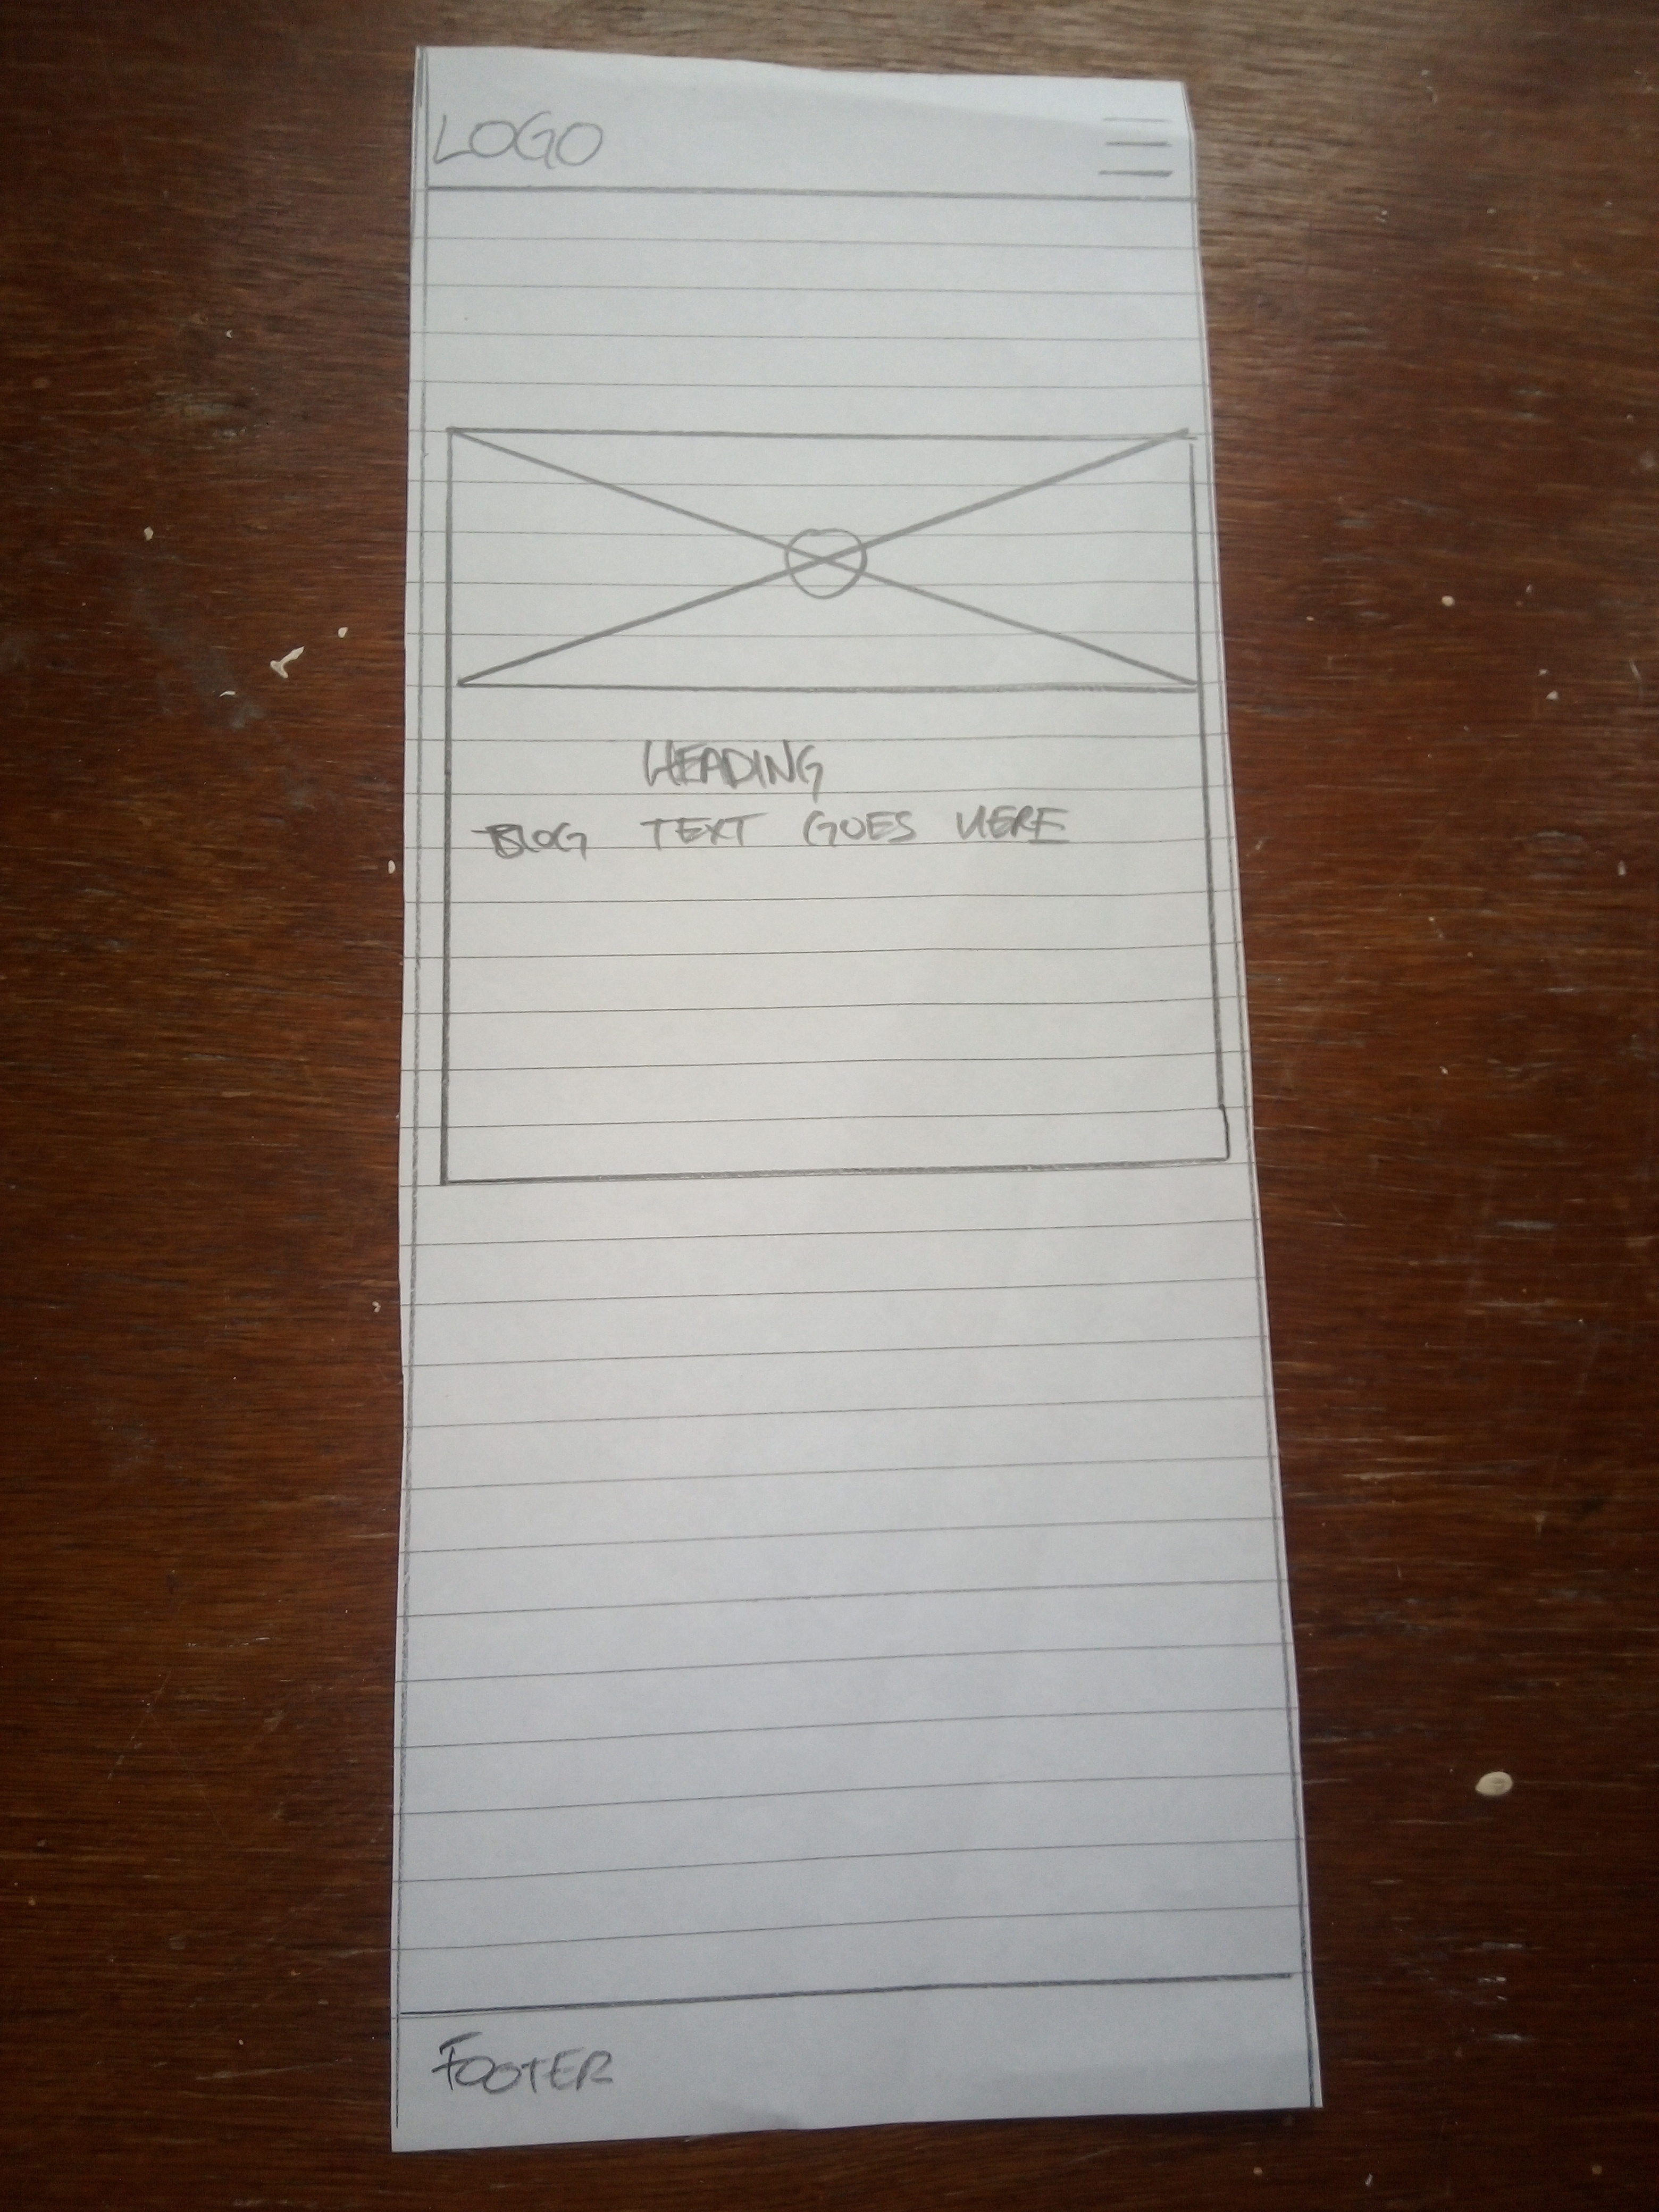 LOGO
HEADING
BLOG TEXT GOES HERE
FOOTER